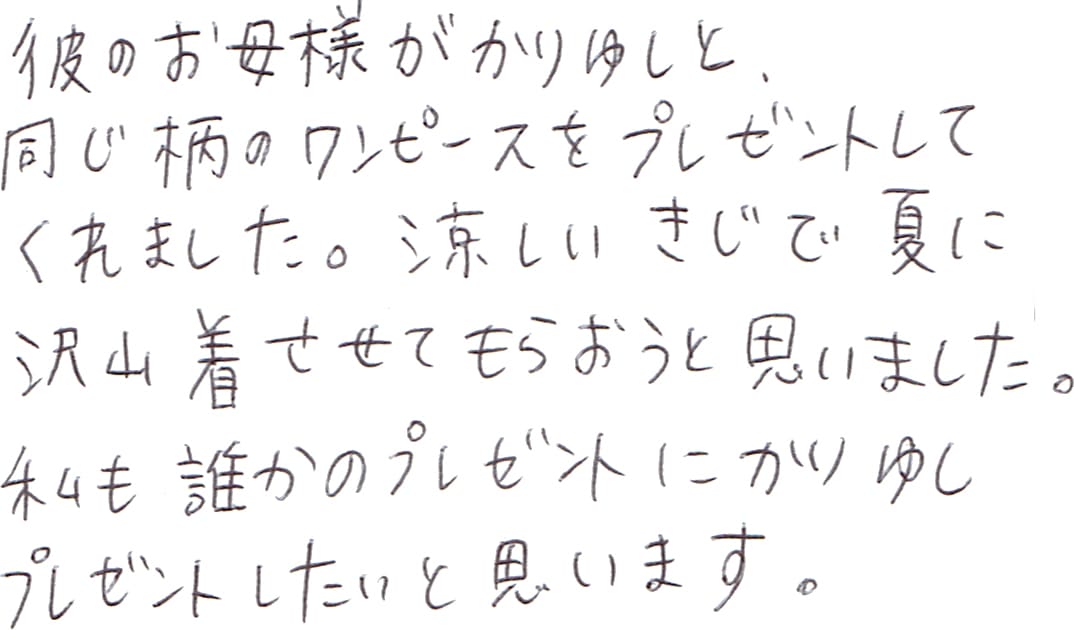 彼のお母様がかりゆしと、
同じ柄のワンピースをプレゼントして
くれました。涼しいきじで夏に
沢山着させてもらおうと思いました。
私も誰かのプレゼントにかりゆし
プレゼントしたいと思います。